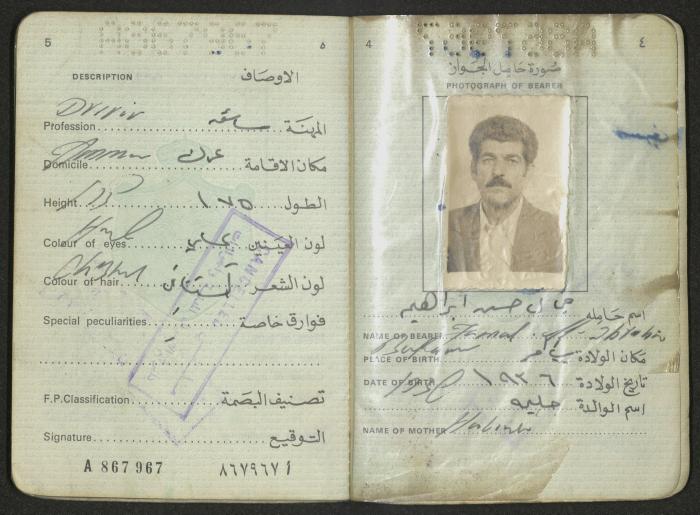 5 ٥
DESCRIPTION الاوصاف
Profession المهنة
Domicile مكان الاقامة عمان
Height الطول ١٧٥
Colour of eyes لون العينين عسلي
Colour of hair لون الشعر
Special peculiarities فوارق خاصة
F.P.Classification تصنيف البصمة
Signature التوقيع
A 867967 أ ٨٦٧٩٦٧
CANCELLED
4 ٤
صورة حامل الجواز
PHOTOGRAPH OF BEARER
اسم حامله جمال حسن ابراهيم
NAME OF BEARER Jamal Ibrahim
PLACE OF BIRTH مكان الولادة
DATE OF BIRTH تاريخ الولادة ١٩٣٦
اسم الوالدة حليمه
NAME OF MOTHER Halimeh